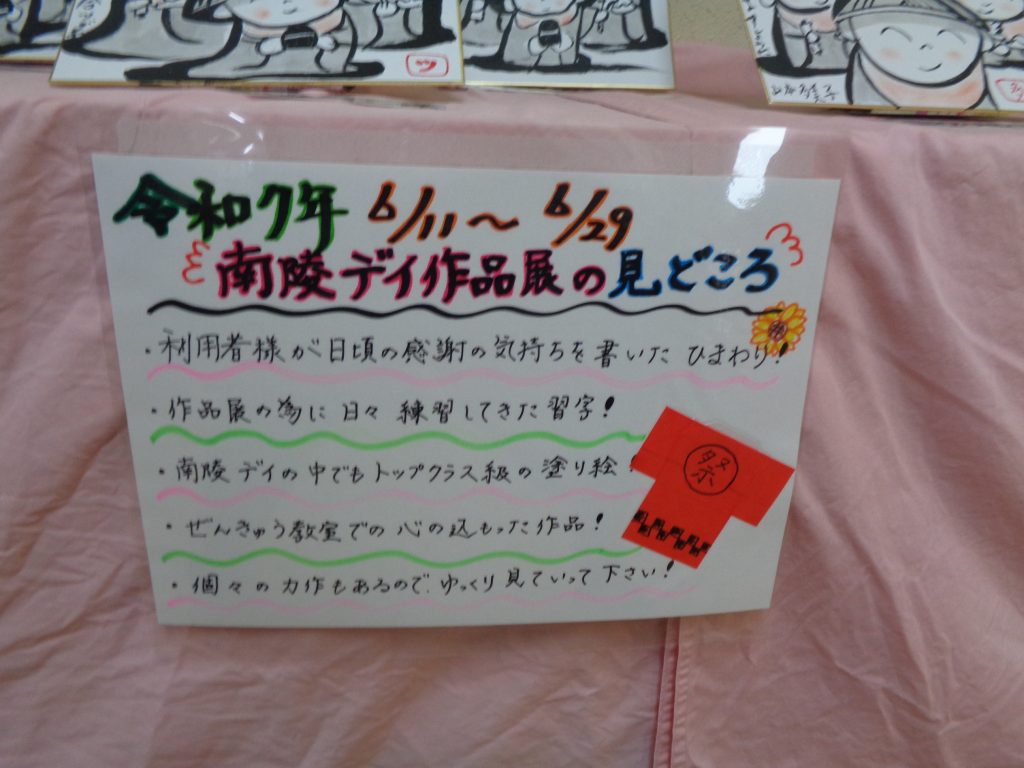 令和7年 6/11～6/29
南陵デイ作品展の見どころ
・利用者様が日頃の感謝の気持ちを書いたひまわり!
・作品展の為に日々練習してきた習字!
・南陵デイの中でもトップクラス級の塗り絵!
祭
・ぜんきゅう教室での心の込もった作品!
・個々の力作もあるので、ゆっくり見ていって下さい!